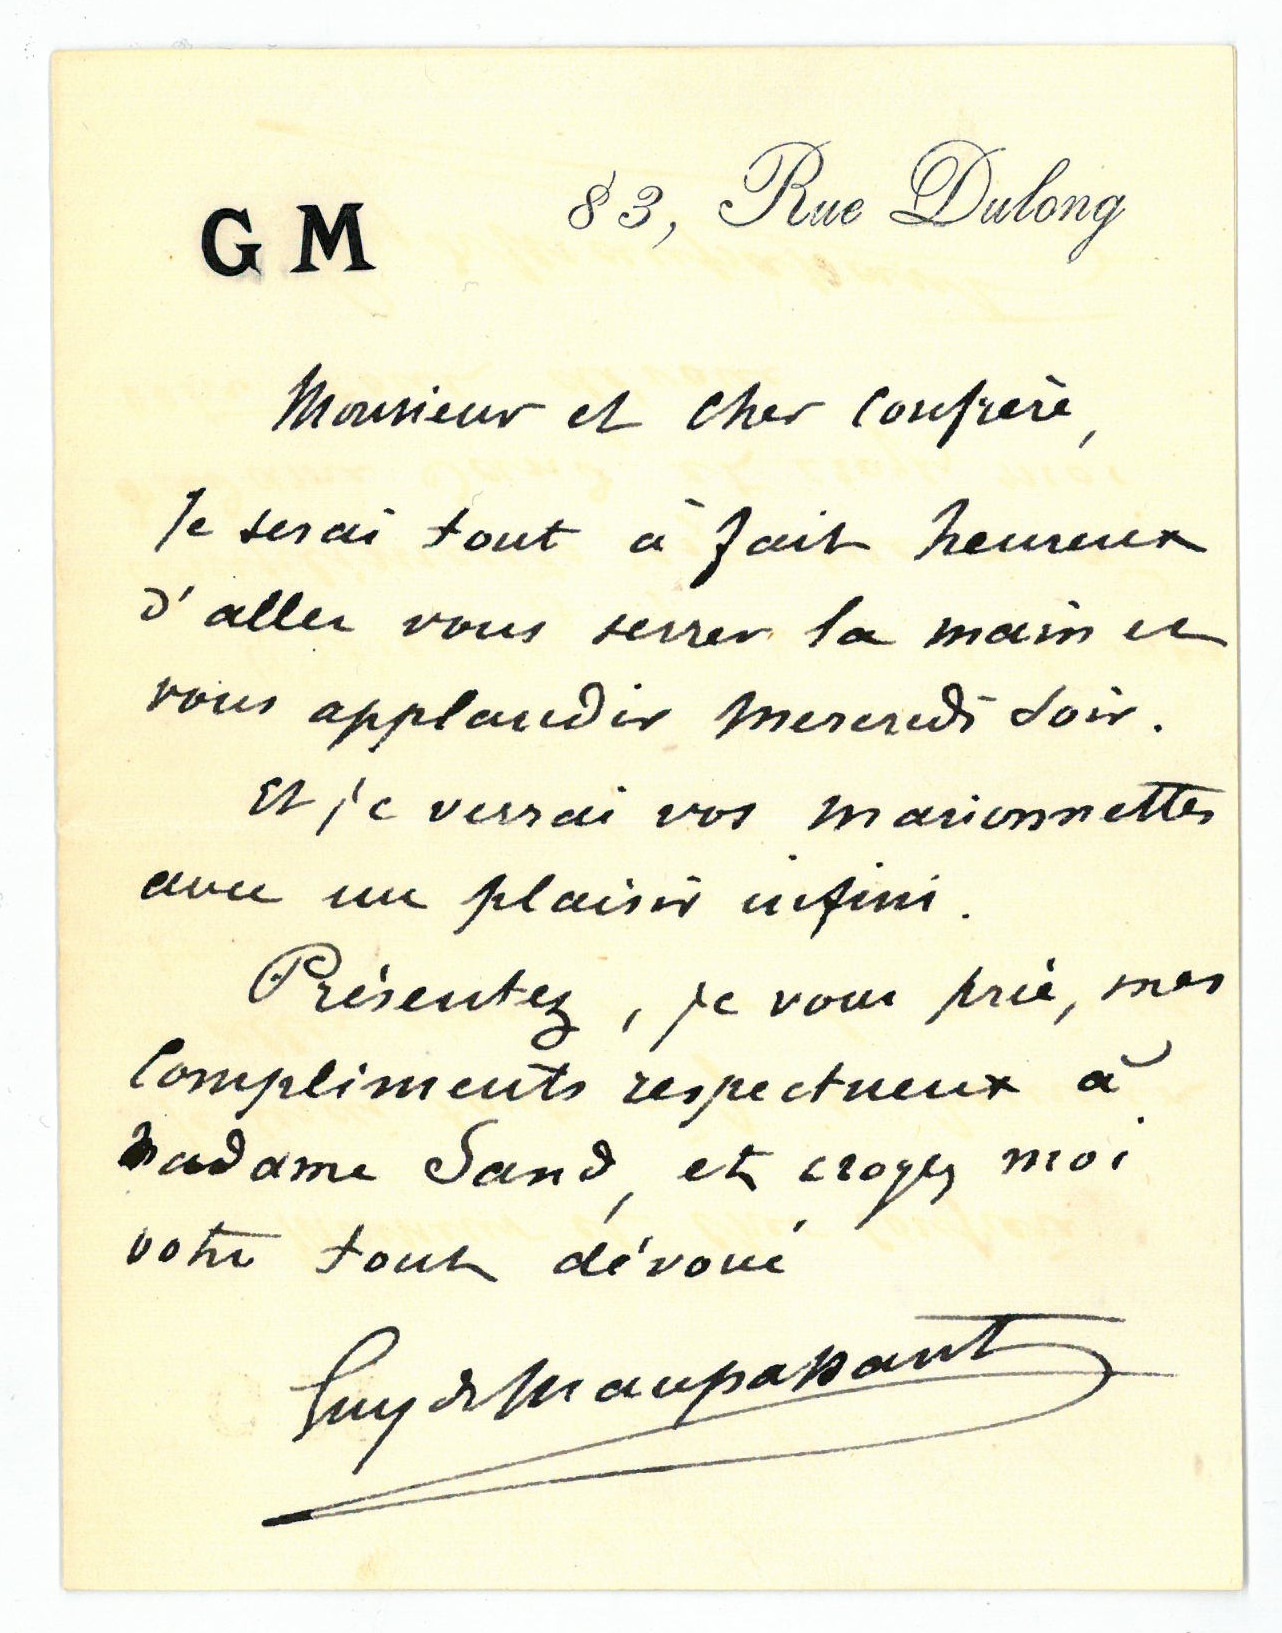 GM
83, Rue Dulong
Monsieur et cher confrère,
Je serai tout à fait heureux
d'aller vous serrer la main et
vous applaudir mercredi soir.
Et je verrai vos marionnettes
avec un plaisir infini.
Présentez, je vous prie, mes
compliments respectueux à
Madame Sand, et croyez moi
votre tout dévoué
Guy de Maupassant